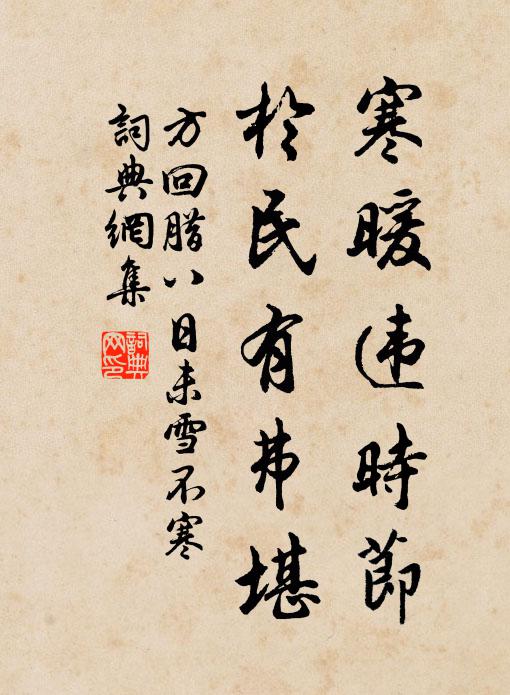 寒暖违時節
於民有弗堪
方回腊八日未雪不寒
詞典網集
詞典網印